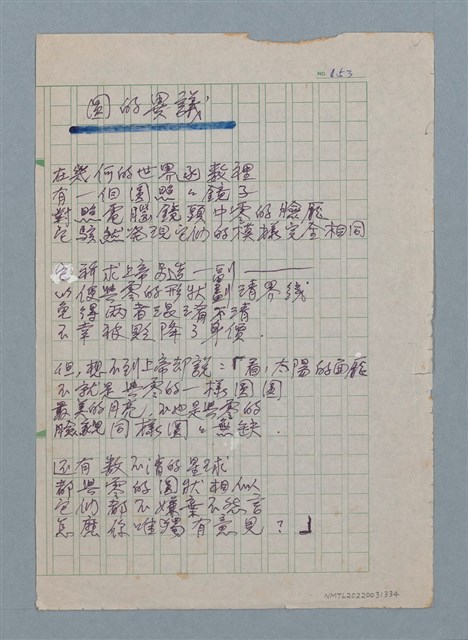 NO. 153
圓的異議
在幾何的世界函數裡
有一個圓照々鏡子
對照電腦鏡頭中零的臉龐
它駭然發現它們的模樣完全相同
它祈求上帝另造一副——
以便與零的形狀劃清界线
免得兩者混淆不清
不幸被貶降了身價.
但,想不到上帝却說:「看,太陽的面龐
不就是與零的一樣圓圓
最美的月亮,不也是與零的
臉龐同樣圓々無缺.
还有数不清的星球
都與零的圓狀相似
它们都不嫌棄不怨言
怎麼你唯獨有意見?」
NMTL20220031334